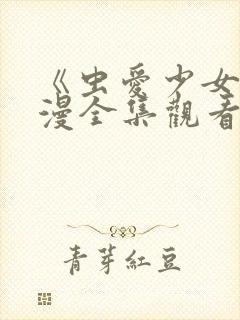 《虫愛少女
漫全集觀看
青芽紅豆